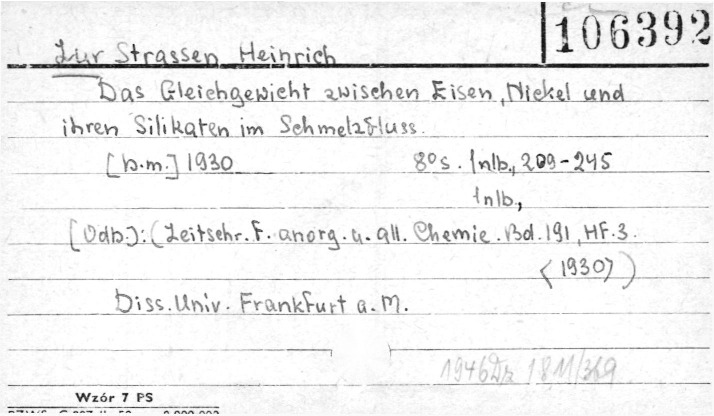 106392
Zur Strassen Heinrich
Das Gleichgewicht zwischen Eisen, Nickel und
ihren Silikaten im Schmelzfluss.
[b.m.] 1930 8° s. 1 nlb., 209-245
1 nlb.,
[Odb.]: (Zeitschr. F. anorg. u. all. Chemie. Bd. 191, HF. 3.
<1930>)
Diss. Univ. Frankfurt a. M.
1946 Dz 18 11/369
Wzór 7 PS